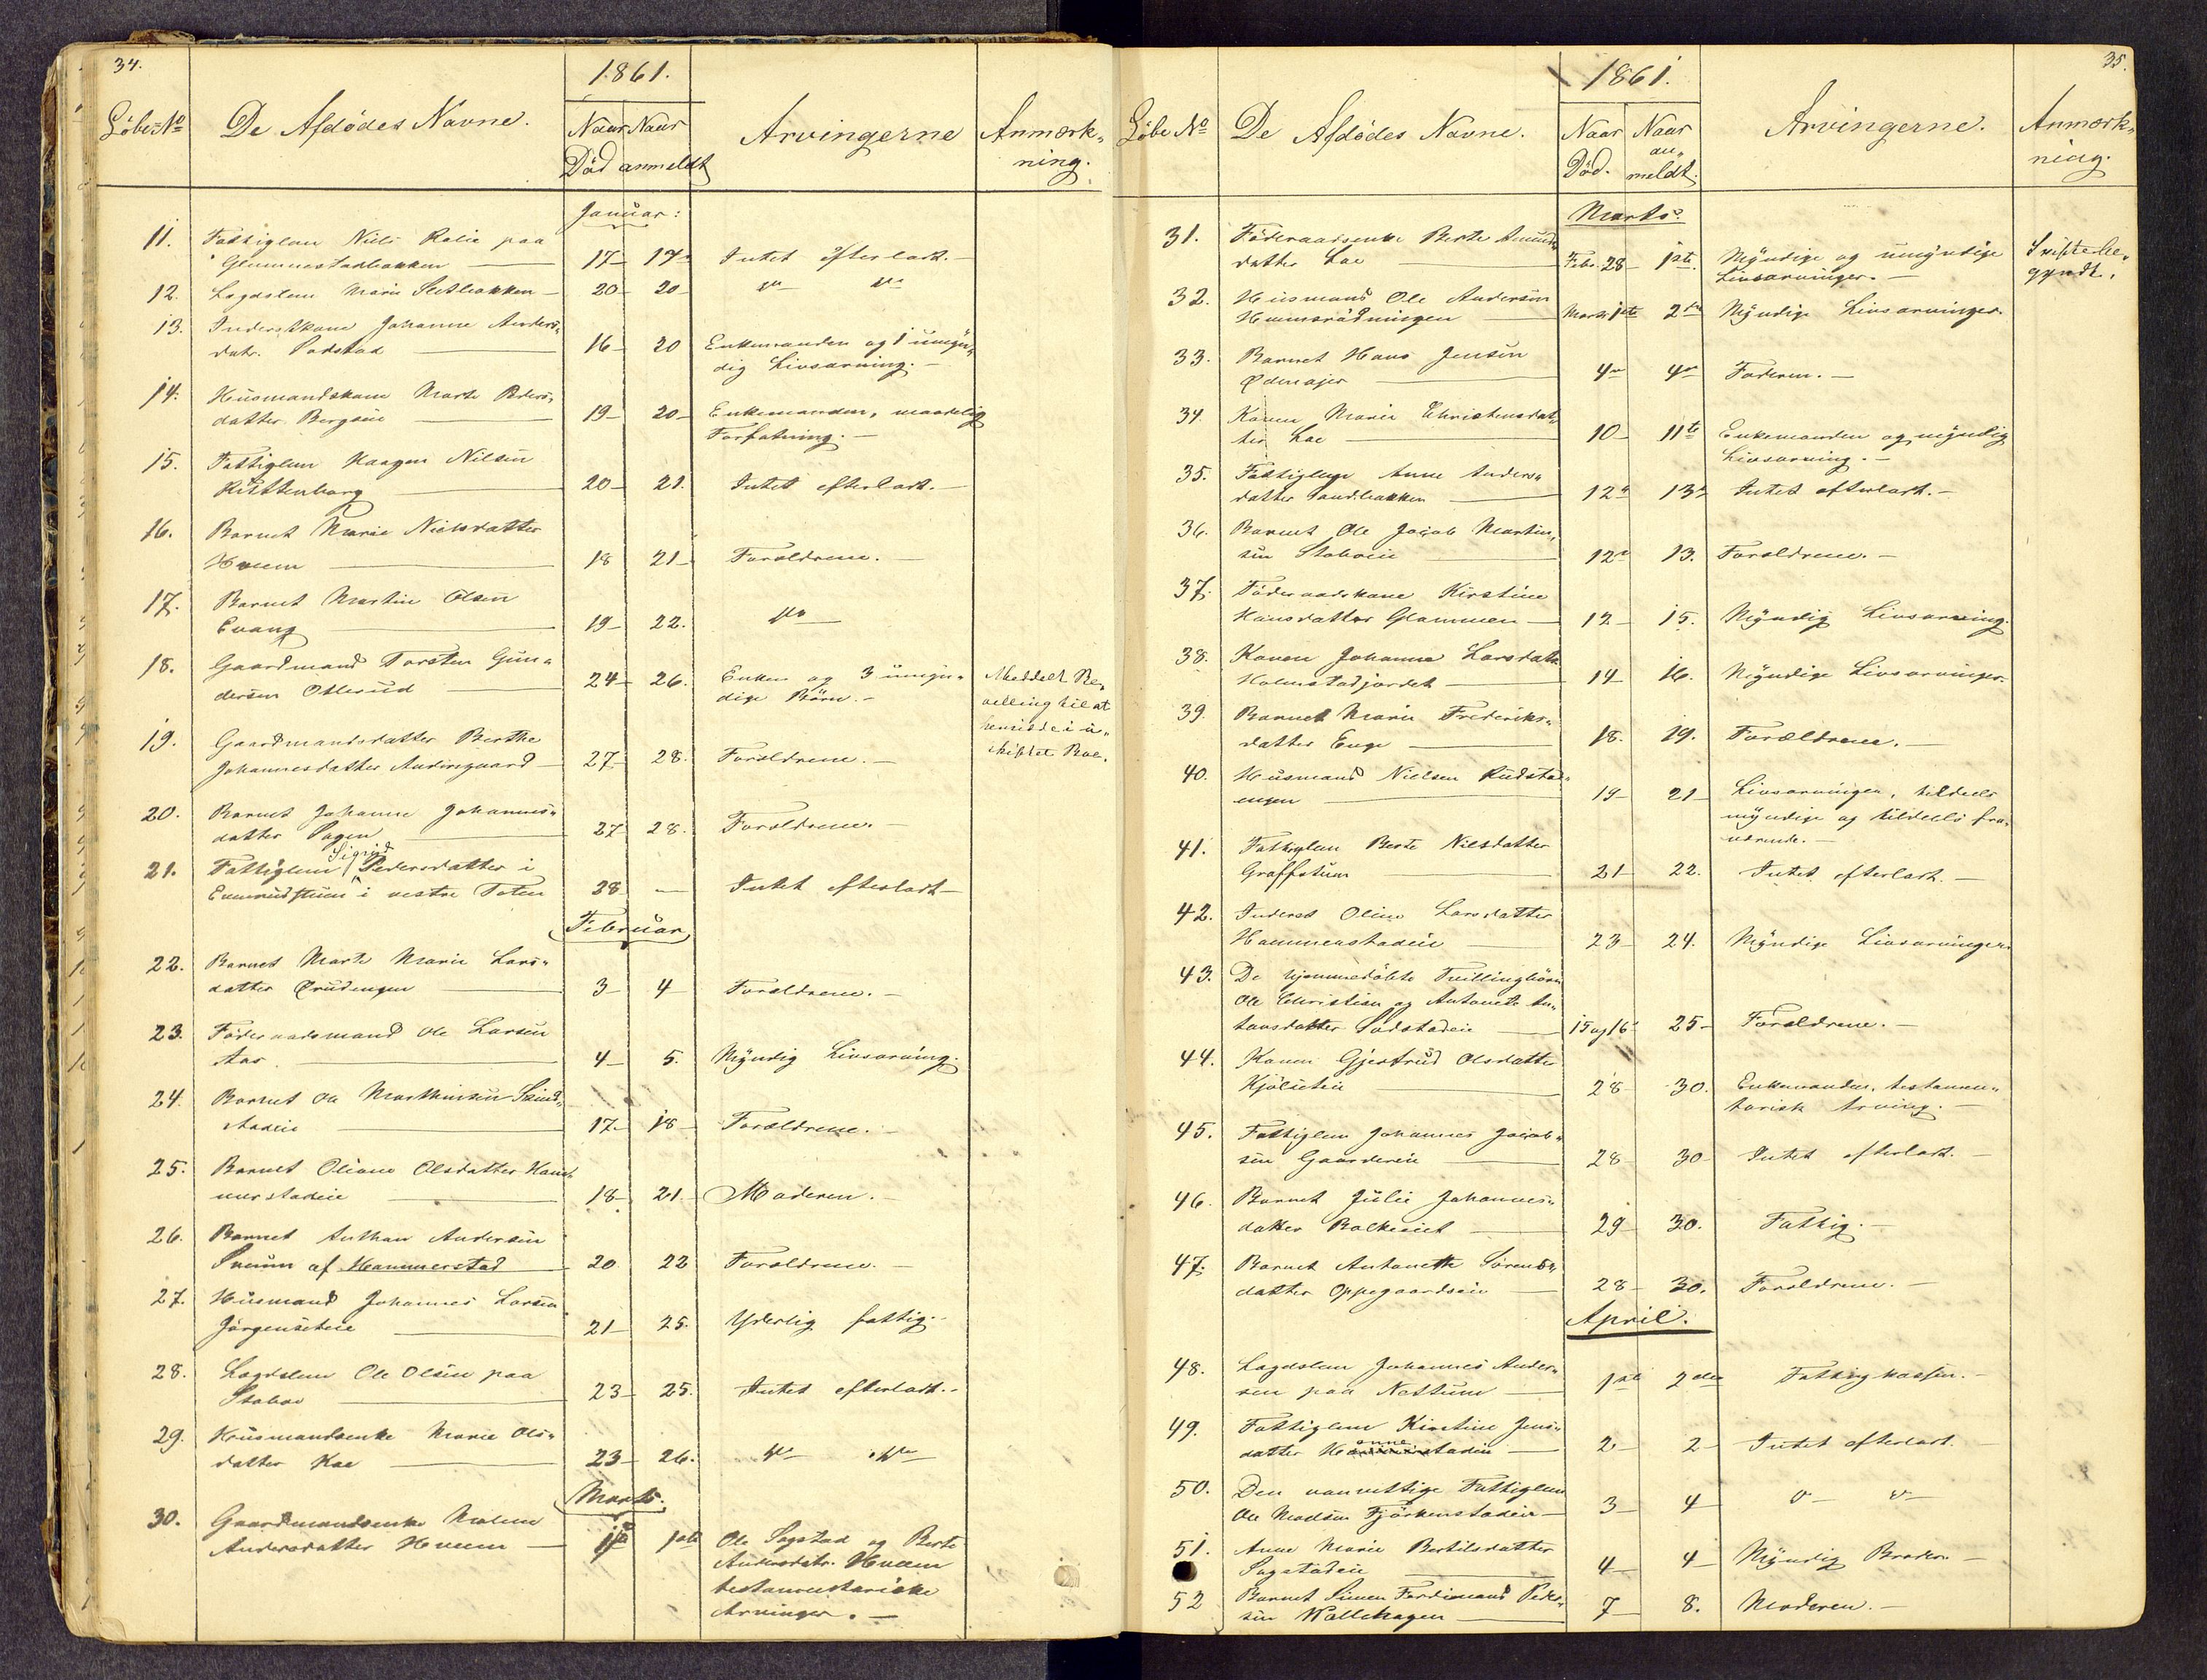 34.
1861.
Löbe-No
De Afdödes Navne.
Naar Död
Naar anmeldt
Arvingerne
Anmærk-
ning.
Januar:
11. Fattiglem Niels Relie paa
Glemmestadbakken 17 17 Intet efterladt.
12. Lægdslem Marie Sletbakken 20 20 do do
13. Inderstkone Johanne Anders-
datr. Sodstad 16 20 Enkemanden og 1 umyn-
dig Livsarving.
14. Husmandskone Marte Peders-
datter Bergseie 19 20 Enkemanden, maadelig
Forfatning.
15. Fattiglem Haagen Nilsen
Kittenborg 20 21. Intet efterladt.
16. Barnet Marie Nielsdatter
Hveem 18 21 Forældrene.
17. Barnet Martin Olsen
Evang 19 22. do
18. Gaardmand Torsten Gun-
dersen Ollerud 24 26. Enken og 3 umyn-
dige Børn.
Meddelt Be-
villing til at
hensidde i u-
skiftet Boe.
19. Gaardmandsdatter Berthe
Johannesdatter Audinsgaard 27 28. Forældrene.
20. Barnet Johanne Johannes-
datter Sagen 27 28. Forældrene.
21. Fattiglem Sigrid Pedersdatter i
i vestre Toten 28 — Intet efterladt
Februar
22. Barnet Marte Marie Lars-
datter Ørudengen 3 4 Forældrene.
23. Föderaadsmand Ole Larsen
Aas 4 5. Myndig Livsarving.
24. Barnet Ole Marthinsen
stadeie 17 18 Forældrene.
25. Barnet Oliane Olsdatter Ham-
merstadeie 18 21 Moderen.
26. Barnet Anthon Andersen
Sveum af Hammerstad 20 22 Forældrene.
27. Husmand Johannes Larsen
Jörgenseteie 21 25. Yderlig fattig.
28. Lægdslem Ole Olsen paa
Stabo 23 25. Intet efterladt.
29. Husmandsenke Marie Ols-
datter Kae 23 26. do do
Marts.
30. Gaardmandsenke Malene
Andersdatter Hveem 1ste Ole Sogstad og Berte
Andersdatr. Hveem
testamentariske
Arvinger.
35.
1861.
Löbe No
De Afdödes Navne.
Naar Död.
Naar an-
meldt.
Arvingerne.
Anmærk-
ning.
Marts.
31. Föderaadsenke Berte Amunds-
datter Lae Febr. 28 1ste Myndige og umyndige
Livsarvinger.
Skifte be-
gyndt.
32. Husmand Ole Andersen
Marts 1ste 2den Myndige Livsarvinger.
33. Barnet Hans Jensen
Ødenajer 4de 4de Faderen.
34. Konen Marie Christensdat-
ter Lae 10 11te Enkemanden og myndig
Livsarving.
35. Fattiglem Anne Anders-
datter Sandbakken 12 13 Intet efterladt.
36. Barnet Ole Jacob Martin-
sen Staboeie 12 13. Forældrene.
37. Föderaadskone Kirstine
Hansdatter Glæmmen 12 15. Myndig Livsarving.
38. Konen Johanne Larsdatter
Holmstadjordet 14 16. Myndige Livsarvinger.
39. Barnet Marie Frederiks-
datter Enge 18. 19. Forældrene.
40. Husmand Nielsen Rudstad-
engen 19 21 Livsarvinger, tildeels
myndige og tildeels fra-
værende.
41. Fattiglem Berte Nielsdatter
Graffstuen 21 22. Intet efterladt.
42. Inderst Oline Larsdatter
Hammerstadeie 23 24. Myndige Livsarvinger.
43. De hjemmedöbte Tvillingbörn
Ole Christian og Antonette An-
tonsdatter Sodstadeie 15 og 16 25 Forældrene.
44. Konen Gjertrud Olsdatter
Kjölseteie 28 30. Enkemanden, testamen-
tarisk Arving.
45. Fattiglem Johannes Jacob-
sen Gaardereie 28 30 Intet efterladt.
46. Barnet Julie Johannes-
datter Balkeeiet 29 30. Fattig.
47. Barnet Antonette Sörens-
datter Oppegaardseie 28 30. Forældrene.
April.
48. Lægdslem Johannes Ander-
sen paa Nettum 1ste 2den Fattigkassen.
49. Fattiglem Kirstine Jens-
datter stadeie 2 2 Intet efterladt.
50. Den vanvittige Fattiglem
Ole Madsen Fjörkenstadeie 3 4 do do
51. Anne Marie Bertilsdatter
Sogstadeie 4 4 Myndig Broder.
52 Barnet Simen Ferdinand Peder-
sen Wallehagen 7 8. Moderen.